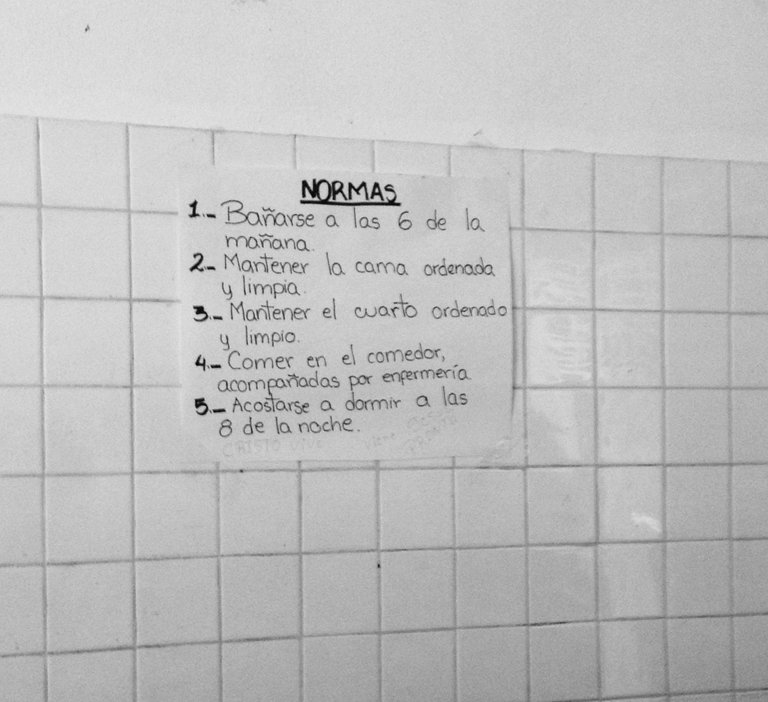 NORMAS
1.- Bañarse a las 6 de la
mañana.
2.- Mantener la cama ordenada
y limpia.
3.- Mantener el cuarto ordenado
y limpio.
4.- Comer en el comedor,
acompañadas por enfermería.
5.- Acostarse a dormir a las
8 de la noche.
CRISTO